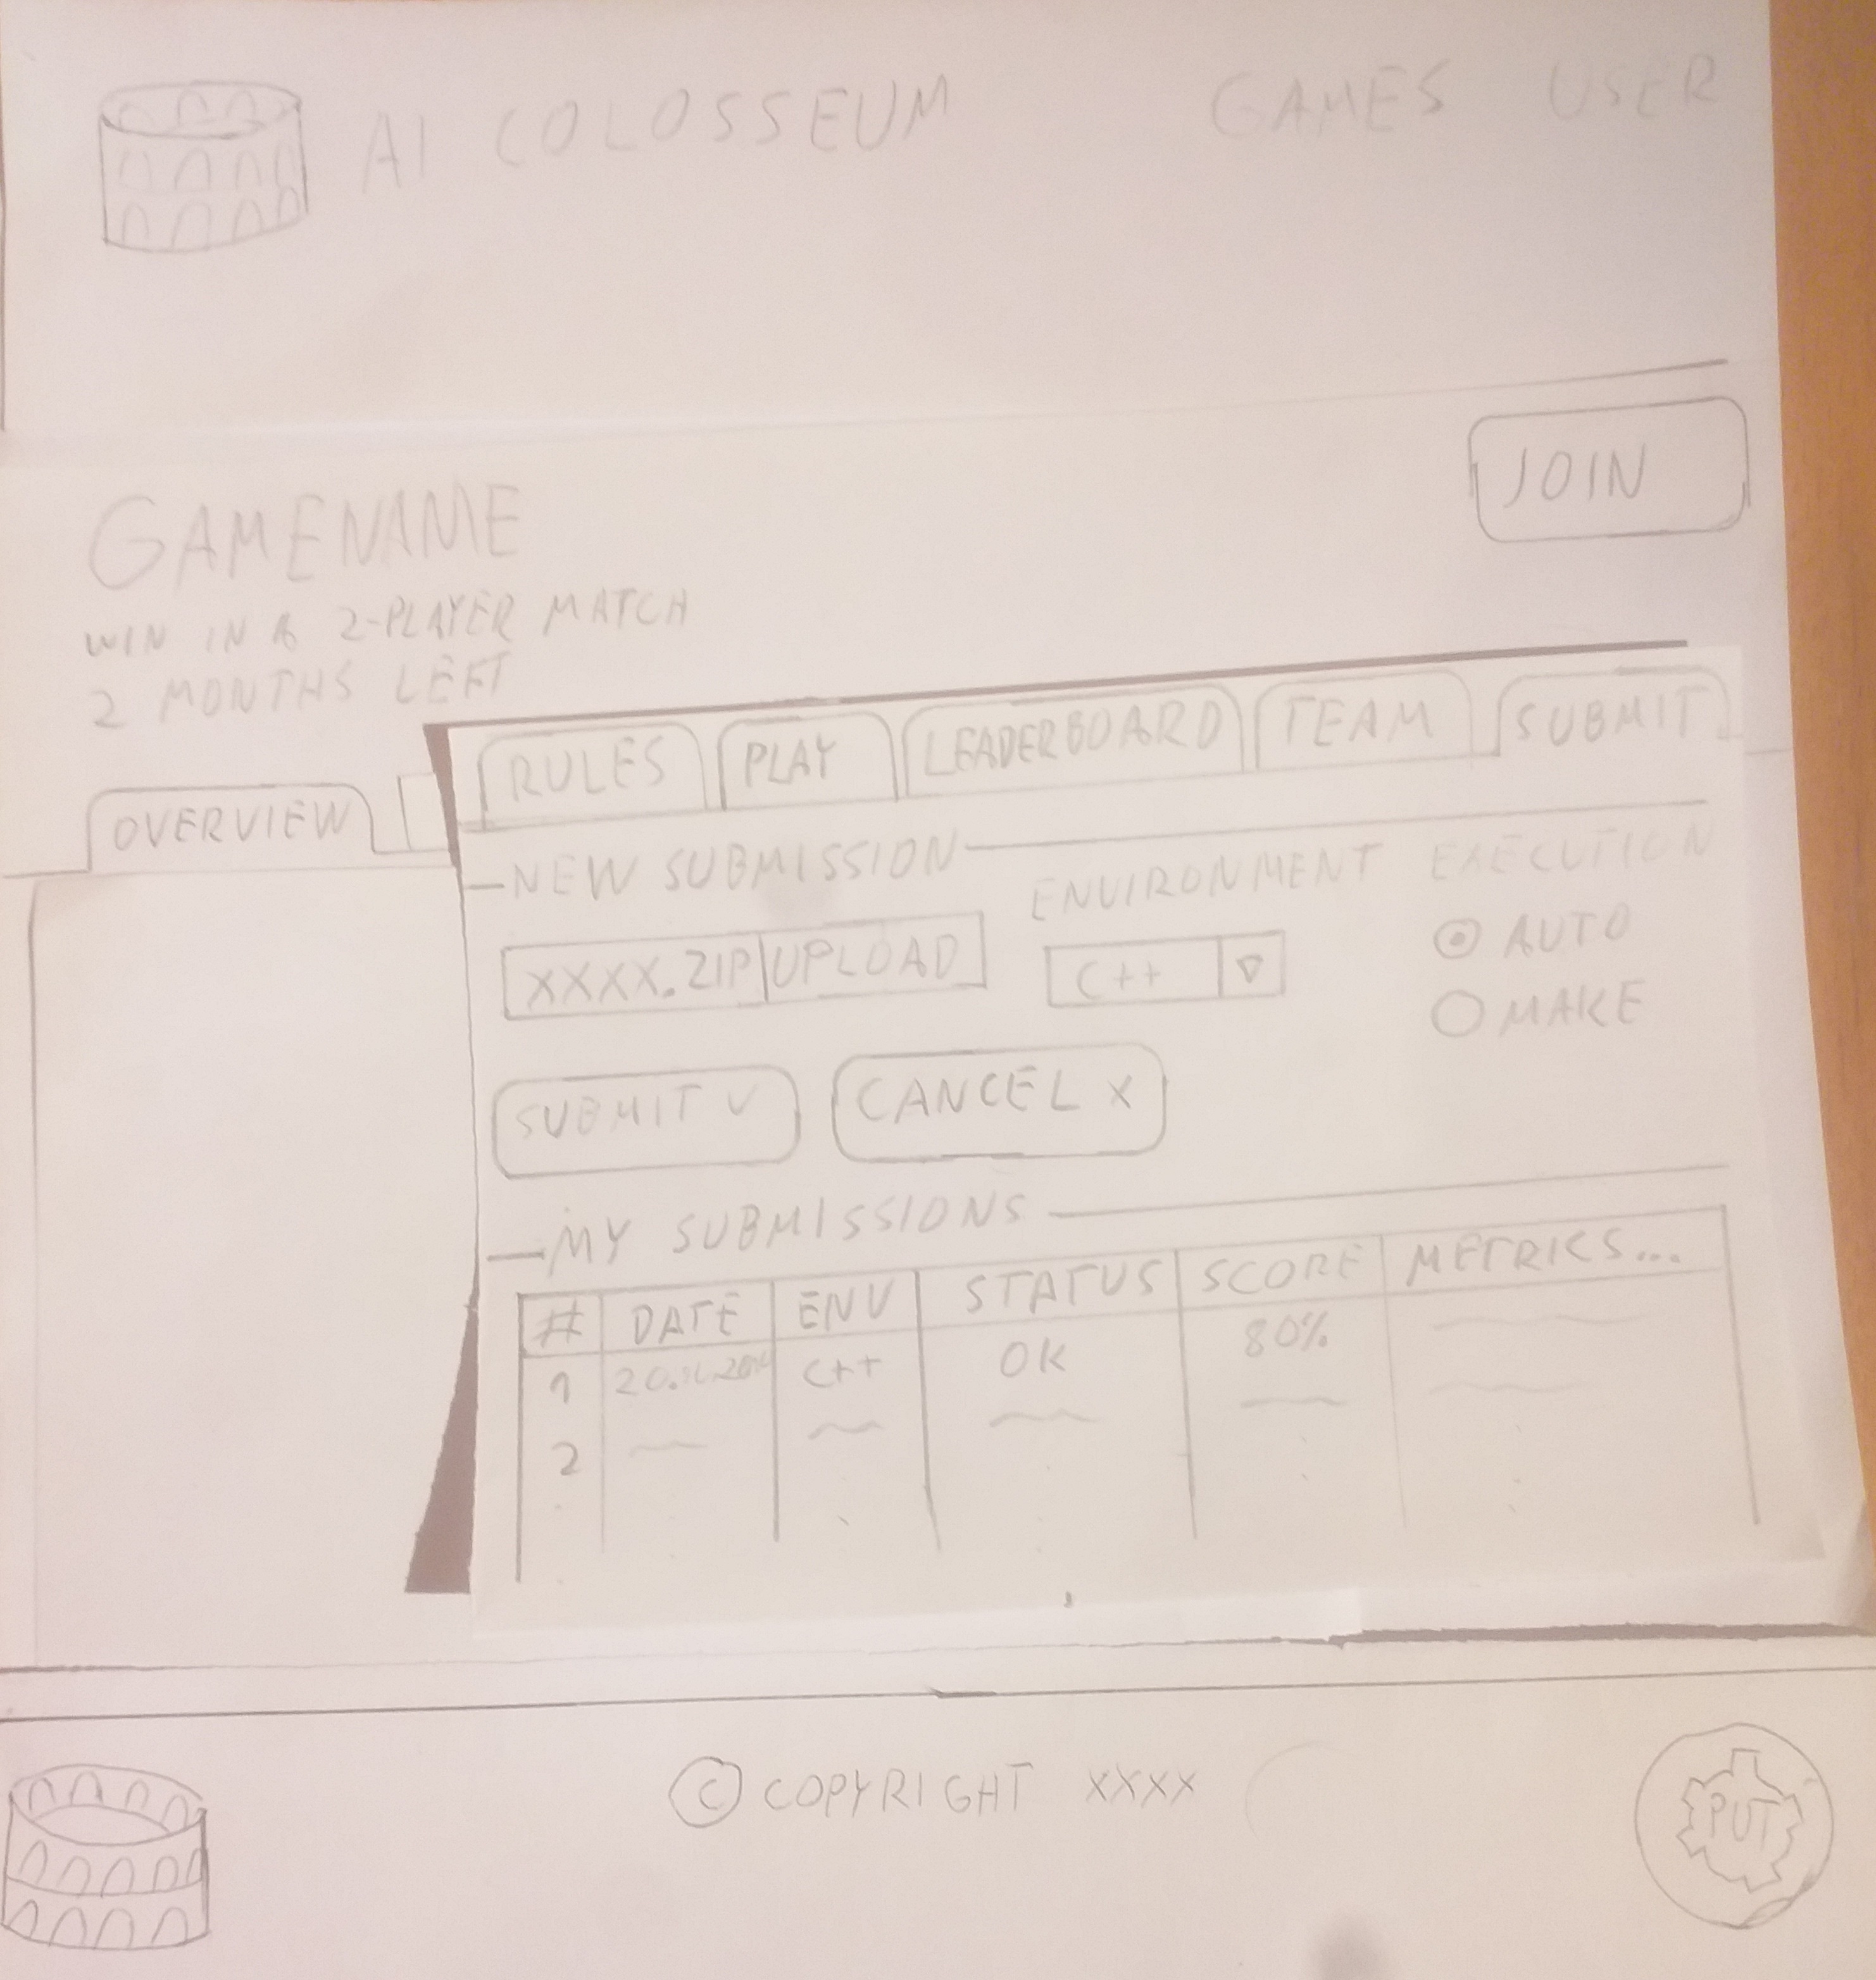 AI COLOSSEUM GAMES USER
GAMENAME
JOIN
WIN IN A 2-PLAYER MATCH
2 MONTHS LEFT
OVERVIEW RULES PLAY LEADERBOARD TEAM SUBMIT
NEW SUBMISSION
ENVIRONMENT EXECUTION
XXXX.ZIP UPLOAD C++ AUTO
MAKE
SUBMIT V CANCEL X
MY SUBMISSIONS
# DATE ENV STATUS SCORE METRICS...
1 C++ OK 80%
2
© COPYRIGHT XXXX
PUT